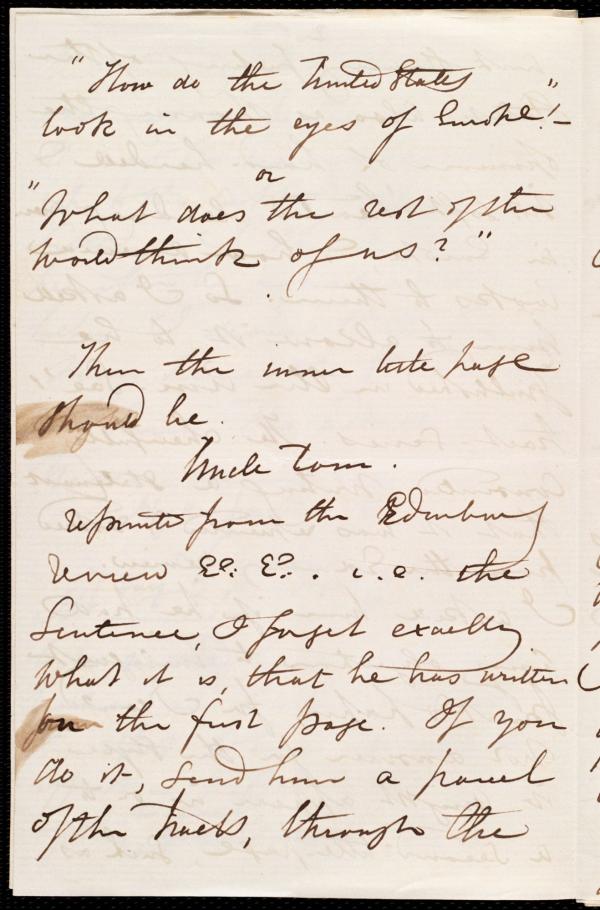 "How do the United States
look in the eyes of Europe!"—
or
"What does the rest of the
world think of us?"
Then the inner title page
should be.
Uncle Tom.
reprinted from the Edinburg
review &c. &c. . i.e. the
Sentence, I forget exactly
what it is, that he has written
for the first page. If you
do it, send him a parcel
of the tracts, through the